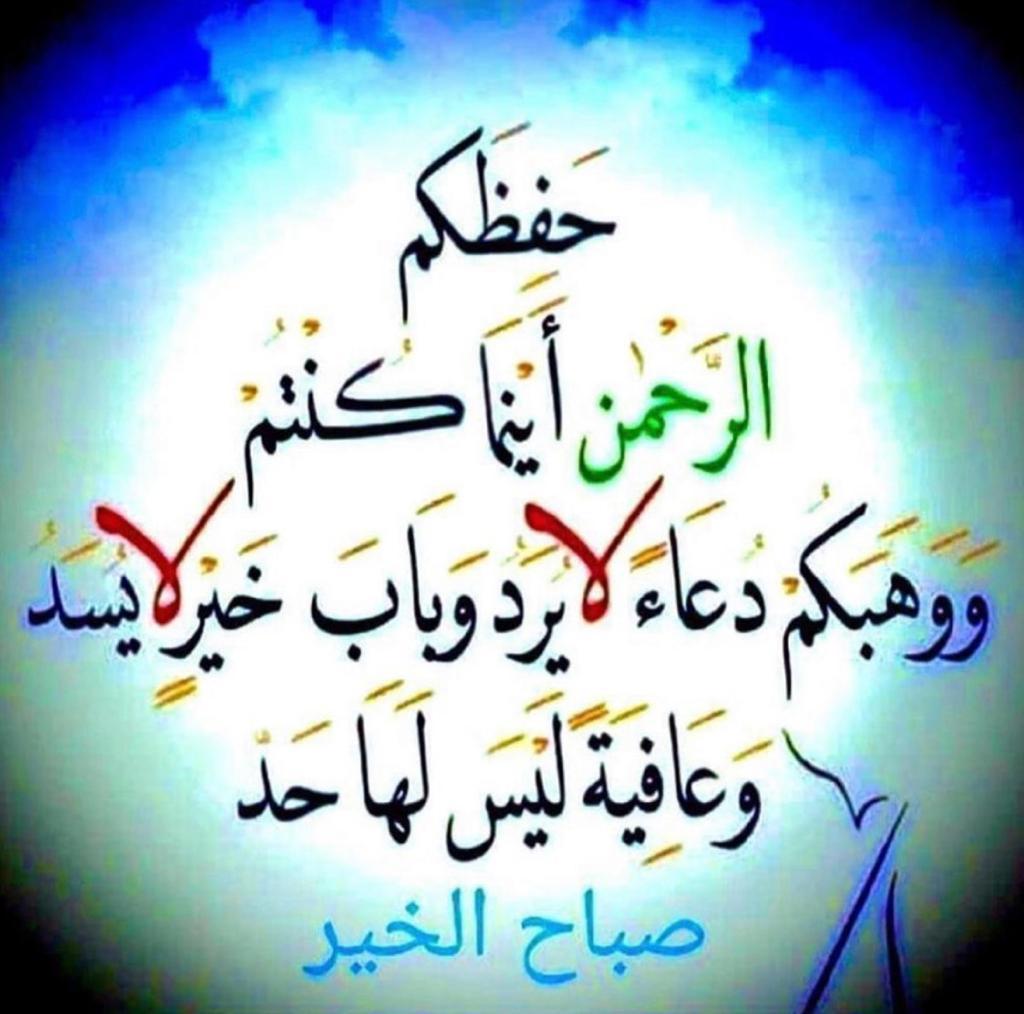 حَفَظَكم
الرَّحْمٰن أَيْنَمَا كُنْتُمْ
وَوَهَبَكُمْ دُعَاءً لا يُرَدُ وَبَابَ خَيْرٍ لا يُسَدُ
وَعَافِيَةً لَيْسَ لَهَا حَدّ
صباح الخير